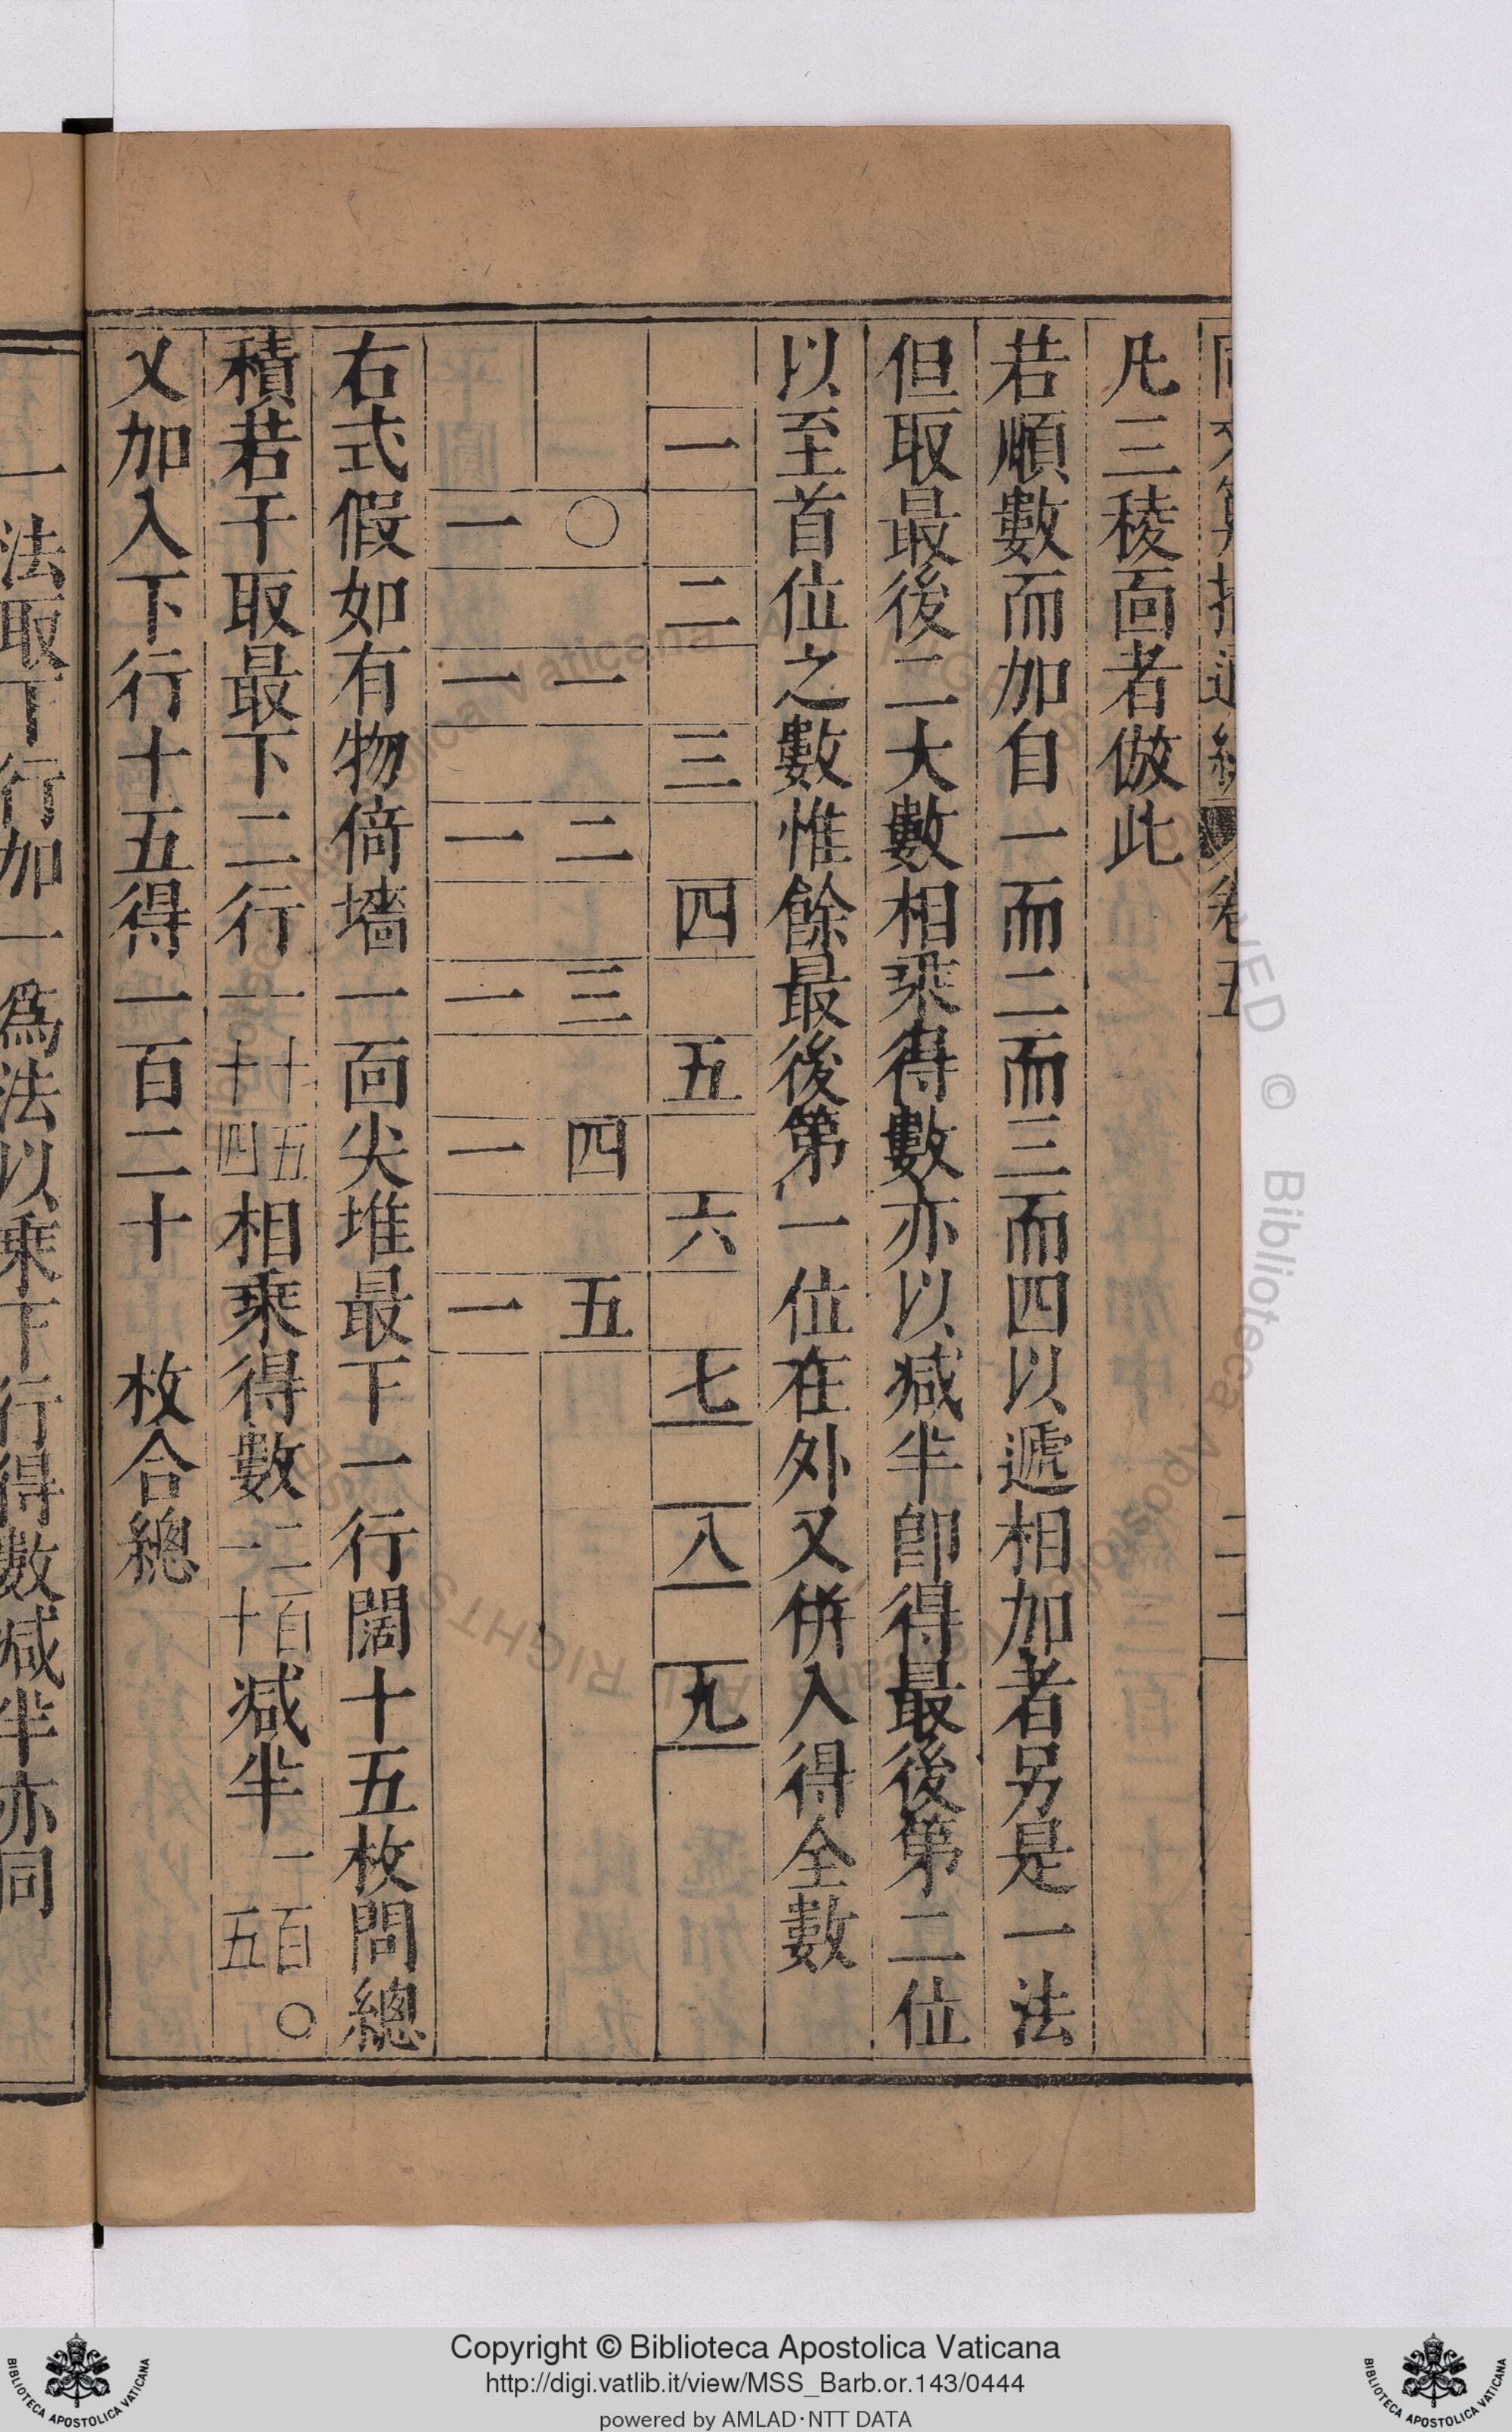 凡三稜面者倣此
若順數而加自一而二而三而四以遞相加者另是一法
但取最後二大數相乘得數亦以減半卽得最後第二位
以至首位之數惟餘最後第一位在外又併入得全數
一 二 三 四 五 六 七 八 九
〇 一 二 三 四 五
一 一 一 一 一 一
右式假如有物倚墻一面尖堆最下一行闊十五枚問總
積若干取最下二行一十五一十四相乘得數二百一十減半一百〇五
又加入下行十五得一百二十 枚合總
一法取下行加一爲法以乘下行得數減半亦同
Copyright © Biblioteca Apostolica Vaticana
http://digi.vatlib.it/view/MSS_Barb.or.143/0444
powered by AMLAD·NTT DATA
BIBLIOTECA APOSTOLICA VATICANA
BIBLIOTECA APOSTOLICA VATICANA